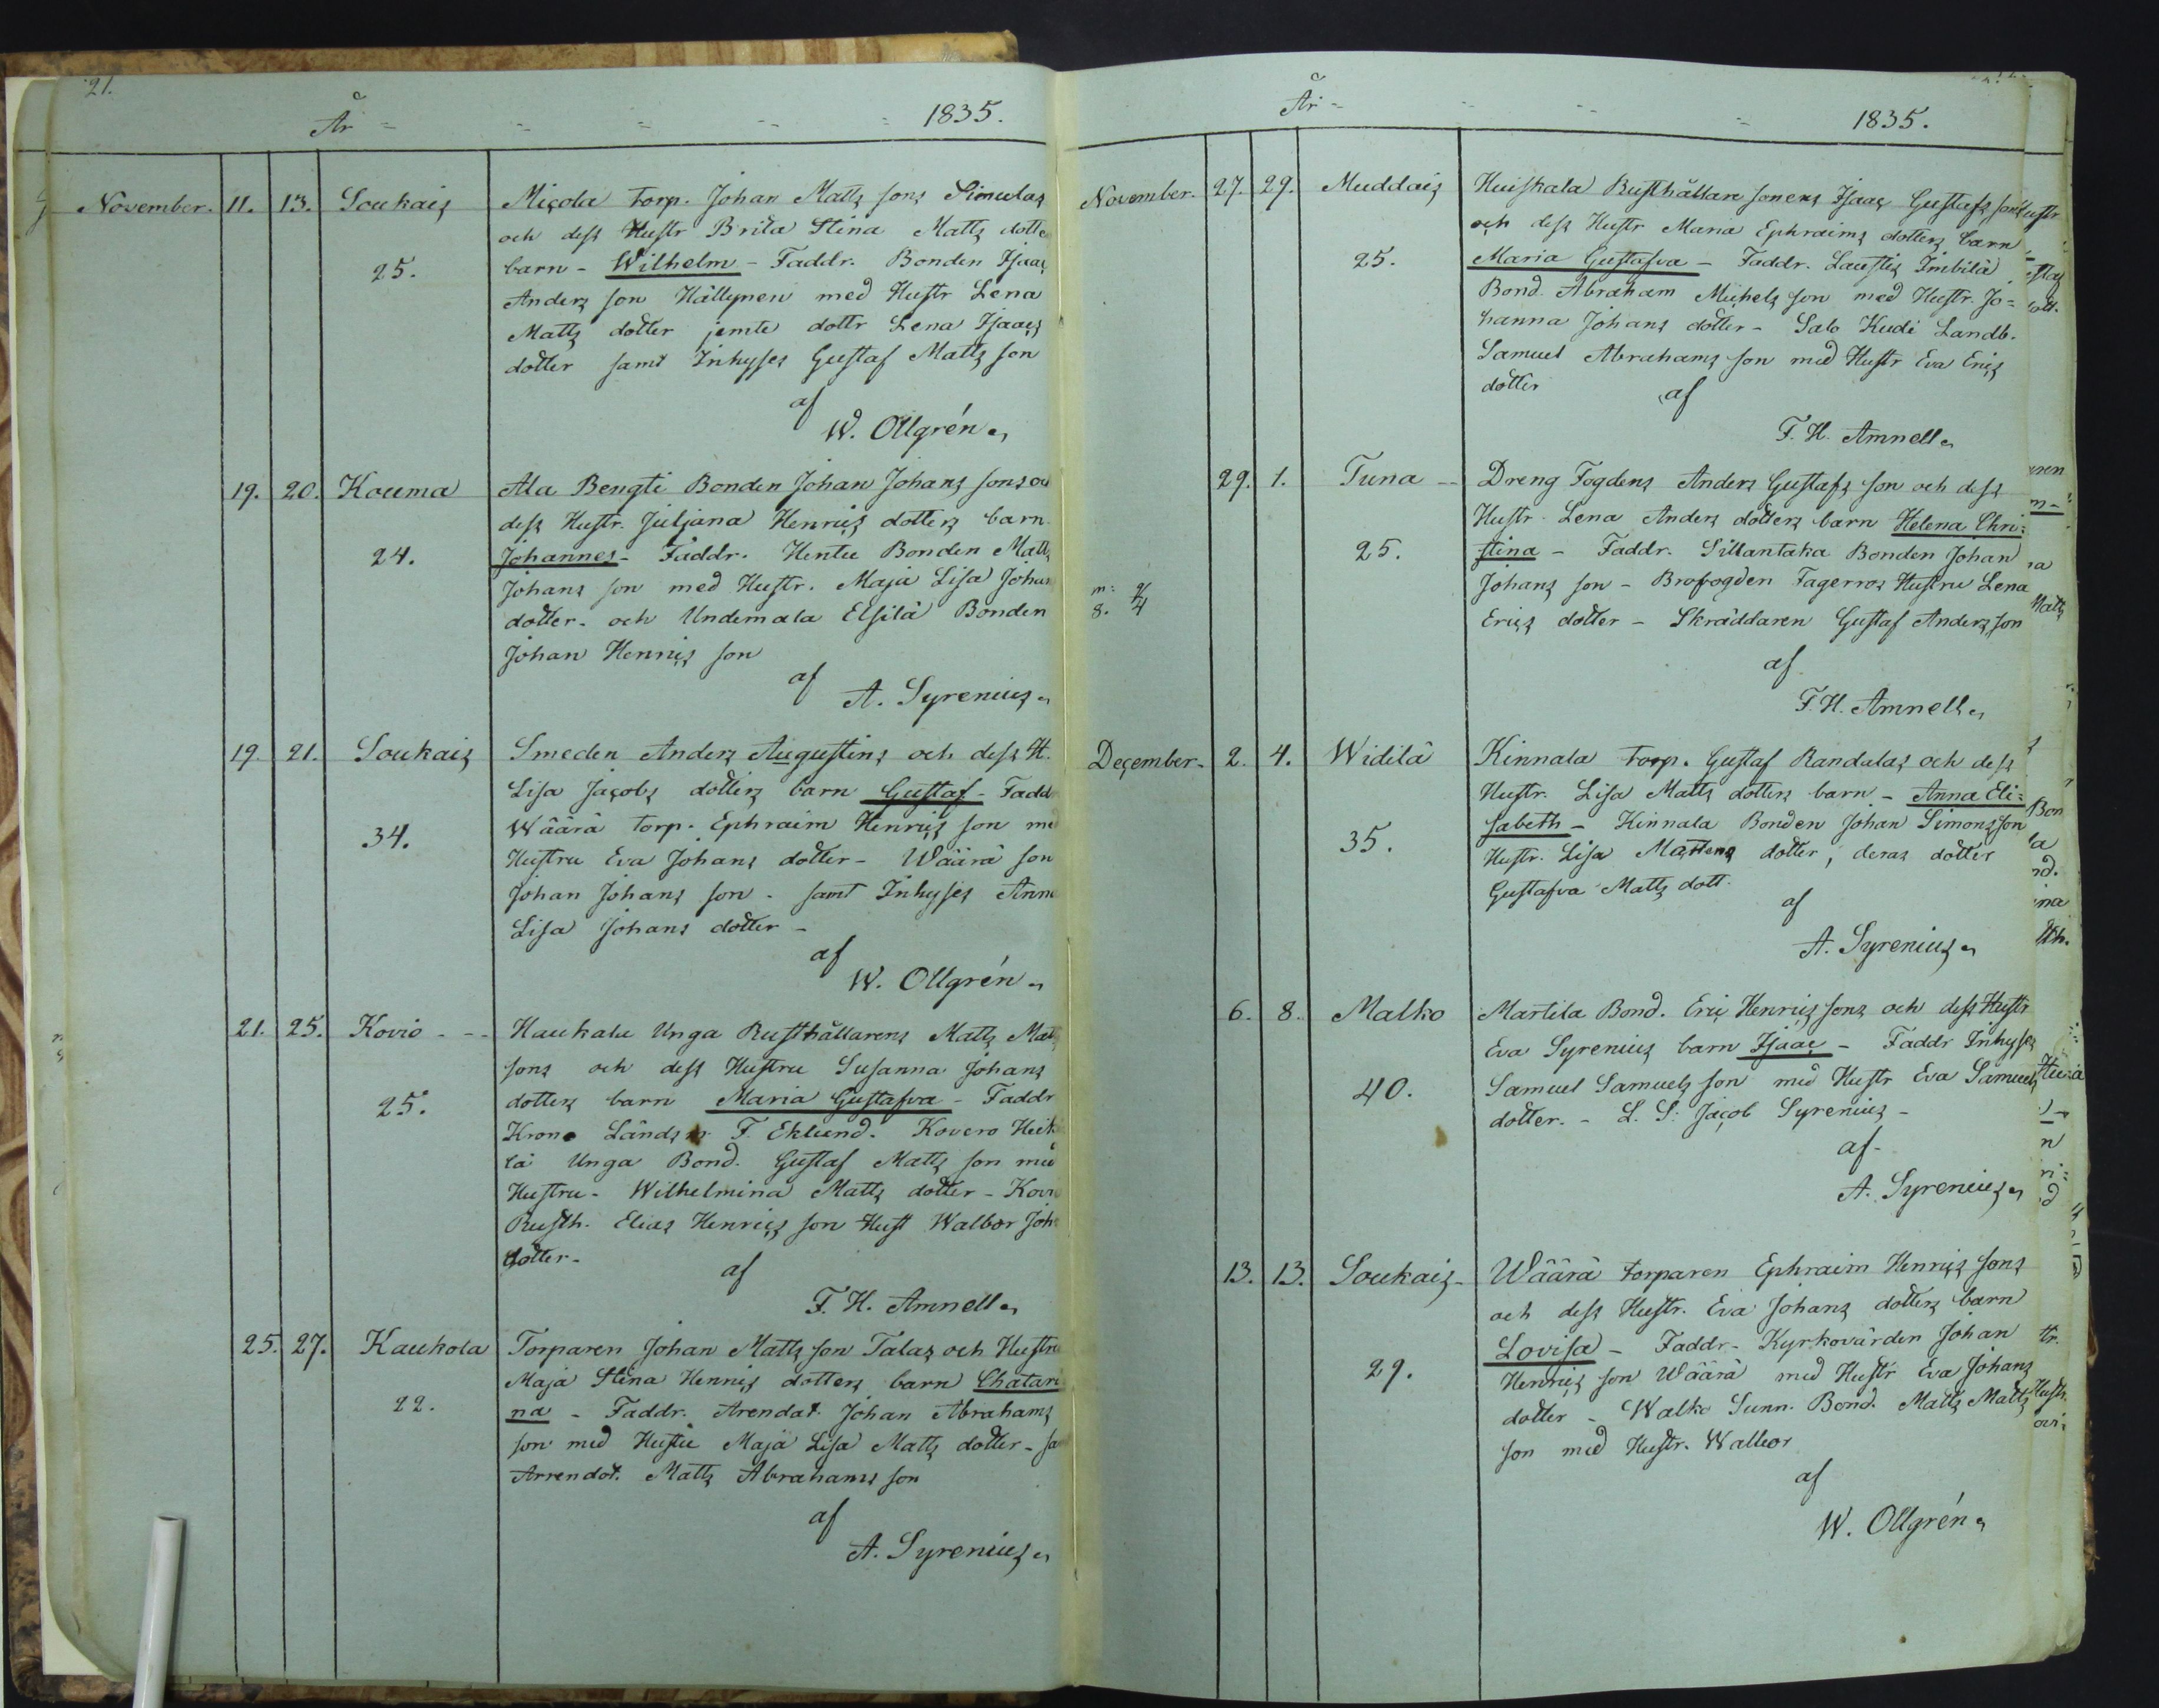 21.
År - - - - - 1835.
November. 11. 13. Soukais Miçola torp. Johan Matts sons Simulas
och dess Hustr Brita Stina Matts dotte
25. barn - Wilhelm - Faddr. Bonden Isaac
Anders son Hällynen med Hustr Lena
Matts dotter jemte dottr Lena Isaacs
dotter samt Inhyses Gustaf Matts son
af
W. Ollgrén
19. 20. Kouma Ala Bengti Bonden Johan Johans sons oc
dess Hustr. Juljana Henrics dotters barn.
24. Johannes - Faddr. Hentu Bonden Matts
Johans son med Hustr. Maja Lisa Johans
dotter. och Undemala Elsilä Bonden
Johan Henrics son
af
A. Syrenius
19. 21. Soukais Smeden Anders Augustins och dess H.
Lisa Jacobs dotters barn Gustaf - Fadd
34. Wäärä torp. Ephraim Henrics son me
Hustru Eva Johans dotter - Wäärä son
Johan Johans son - samt Inhyses Anna
Lisa Johans dotter -
af
W. Ollgrén
21. 25. Kovio - - Haukalu Unga Rusthållarens Matts Matts
sons och dess Hustru Susanna Johans
25. dotters barn Maria Gustafva - Faddr
Krono Länds F. Eklund. Kovero Heik
lä Unga Bond. Gustaf Matts son me
Hustru - Wilhelmina Matts dotter - Kovio
Rusth. Elias Henrics son Hust Walbor Joh
dotter -
af
F. H. Amnell
25. 27. Kaukola Torparen Johan Matts son Talas och Hustru
Maja Stina Henrics dotters barn Chatari
22. na - Faddr. Arendat. Johan Abrahams
son med Hustru Maja Lisa Matts dotter - sa
Arrendat. Matts Abrahams son
af
A. Syrenius
År - - - - 1835.
November. 27. 29. Muddais Huiskala Rusthållare sonens Isaac Gustafs sons
och dess Hustr Maria Ephraims dotters barn
25. Maria Gustafva - Faddr. Laustis Imbilä
Bond. Abraham Michels son med Hustr. Jo=
hanna Johans dotter - Salo Kudi Landb.
Samuel Abrahams son med Hustr Eva Erics
dotter
af
F. H. Amnell
29. 1. Tuna - Dreng Fogdens Anders Gustafs son och dess
Hustr. Lena Anders dotters barn Helena Chri=
25. stina - Faddr. Sillantaka Bonden Johan
Johans son - Brofogden Fagerros Hustru Lena
Erics dotter - Skräddaren Gustaf Anders son
af
F. H. Amnell
December - 2. 4. Widilä Kinnala torp. Gustaf Randalas och dess
Hustr. Lisa Matts dotters barn - Anna Eli=
sabeth - Kinnala Bonden Johan Simons son
35. Hustr. Lisa Mårtens dotter, deras dotter
Gustafva Matts dott.
af
A. Syrenius
6. 8. Malko Martila Bond. Eric Henrics sons och dess Hustr
Eva Syrenius barn Isaac - Faddr Inhyses
40. Samuel Samuels son med Hustr Eva Samuels
dotter. - L. S. Jacob Syrenius -
af -
A. Syrenius
13. 13. Soukais - Wäärä torparen Ephraim Henrics sons
och dess Hustr. Eva Johans dotters barn
Lovisa - Faddr - Kyrkovärden Johan
29. Henrics son Wäärä med Hustr Eva Johans
dotter - Walko Sunn. Bond. Matts Matts
son med Hustr. Walbor
af
W. Ollgrén